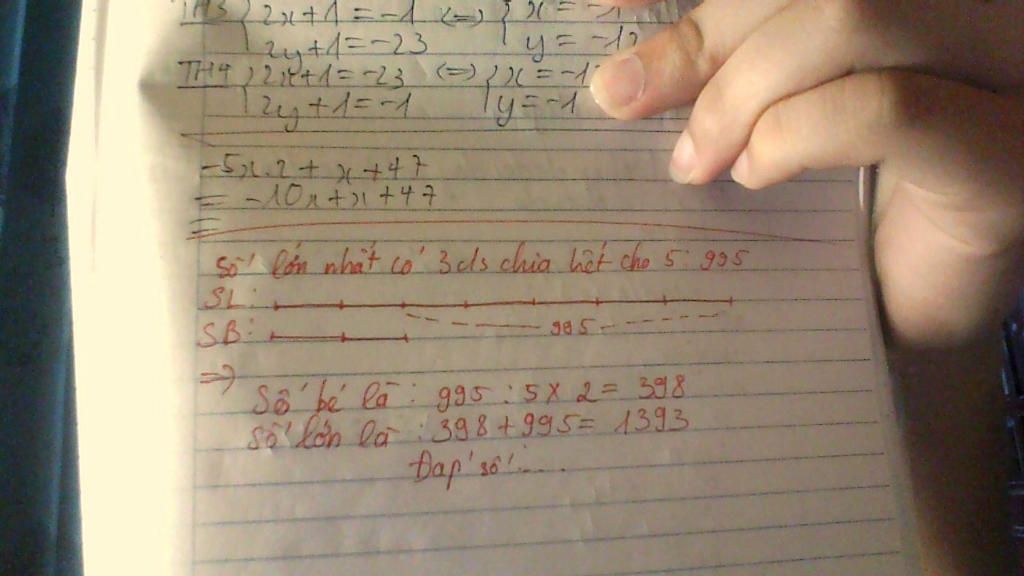 TH3 { 2x+1=-1 <=> { x = -1
2y+1=-23 y = -12
TH4 { 2x+1=-23 <=> { x = -1
2y+1=-1 y = -1
-5x.2 + x + 47
= -10x + x + 47
=
Số lớn nhất có 3 cls chia hết cho 5: 995
SL:
995
SB:
=>
Số bé là : 995 : 5 x 2 = 398
Số lớn là : 398 + 995 = 1393
Đap' số:....